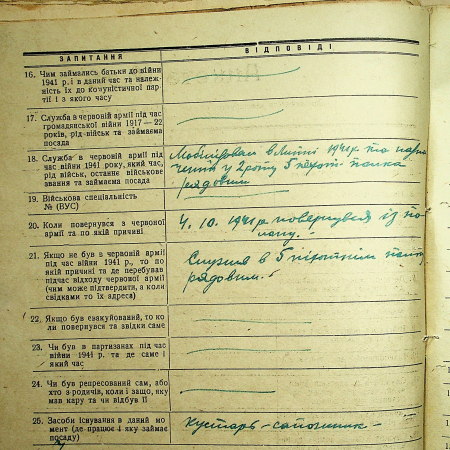 ЗАПИТАННЯ
ВІДПОВІДІ
16. Чим займались батьки до війни
1941 р. і в даний час та належ-
ність їх до комуністичної пар-
тії і з якого часу
17. Служба в червоній армії під час
громадянської війни 1917—22
років, рід військ та займаєма
посада
18. Служба в червоній армії під
час війни 1941 року, який час,
рід військ, останнє військове
звання та займаєма посада
Мобілізован в липні 1941 р. та
2 роту 5 піхот. полка
рядовим
19. Військова спеціяльність
№ (ВУС)
20. Коли повернувся з червоної
армії та по якій причині
4. 10. 1941 р повернувся із по-
лону. -
21. Якщо не був в червоній армії
під час війни 1941 р., то по
якій причині та де перебував
підчас відходу червоної армії
(чим може підтвердити, а коли
свідками то їх адреса)
Служив в 5 піхотнім полку
рядовим.
22. Якщо був евакуйований, то ко
ли повернувся та звідки саме
23. Чи був в партизанах під час
війни 1941 р. та де саме і
який час
24. Чи був репресований сам, або
хто з родичів, коли і защо, яку
мав кару та чи відбув її
25. Засоби існування в даний мо
мент (де працює і яку займає
посаду)
кустарь - сапожник -